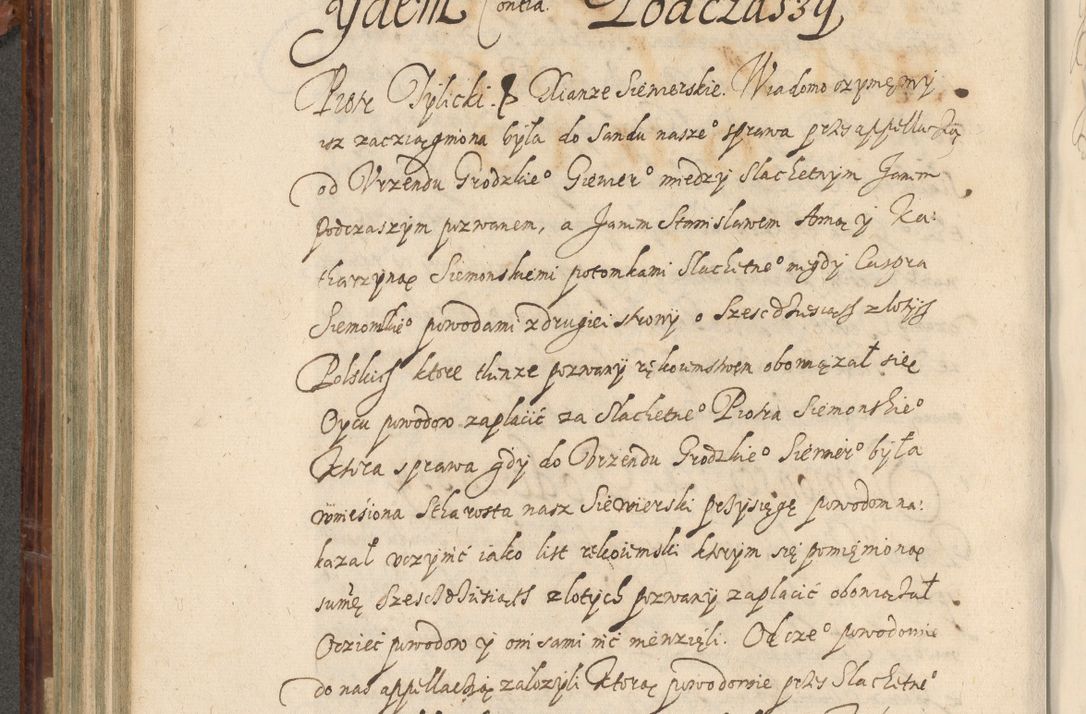 Ydem Contra. Podczaszÿ
Piotr Tÿlicki. Xianze Siewierskie. Wiadomo czÿnięmÿ
isz zacziągniona bÿła do Sandu nasze° sprawa przes appellaczÿą
od Vrzendu Grodzkie° Siewier° miedzÿ Slachetnÿm Janem
Podczaszÿm pozwanem, a Janem Stanislawem Anną ÿ Ka:
tharzÿnąę Siemonskiemi potomkami Slachetne° niegdÿ Caspra
Siemonskie° powodami z drugiei stronÿ o Szescdziesiąth złotÿch
Polskich ktore thenze pozwanÿ rękoiemstwem obowiązał sięę
Oÿcu powodow zaplacić za Slachetne° Piotra Siemonskie°
Ktora sprawa gdÿ do Vrzendu Grodzkie° Siewier° bÿła
wniesiona Stharosta nasz Siewierski przÿsięgę powodom na:
kazał vczÿnić iako list rękoiemski ktorÿm się pomięnionąę
sumę Szescdziesiąth zlotÿch pozwanÿ zaplacić obowiązał
Ocziec powodow ÿ oni sami nic niewzięli. Od cze° powodowie
do nas appellaczÿą założÿli Ktorąę powodowie przes Slachetne°